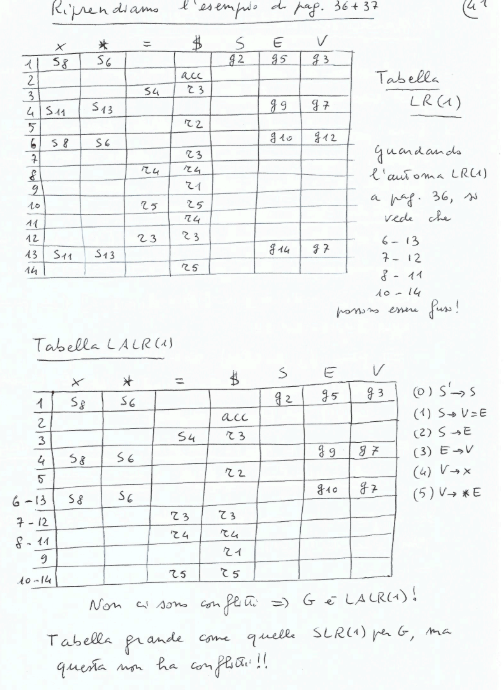 Riprendiamo l'esempio di pag. 36+37 (41
x * = $ S E V
1 S8 S6 g2 g5 g3
2 acc
3 S4 r3
4 S11 S13 g9 g7
5 r2
6 S8 S6 g10 g12
7 r3
8 r4 r4
9 r1
10 r5 r5
11 r4
12 r3 r3
13 S11 S13 g14 g7
14 r5
Tabella
LR(1)
guardando
l'automa LR(1)
a pag. 36, si
vede che
6-13
7-12
8-11
10-14
possono essere fusi!
Tabella LALR(1)
x * = $ S E V
1 S8 S6 g2 g5 g3
2 acc
3 S4 r3
4 S8 S6 g9 g7
5 r2
6-13 S8 S6 g10 g7
7-12 r3 r3
8-11 r4 r4
9 r1
10-14 r5 r5
(0) S'→S
(1) S→V=E
(2) S→E
(3) E→V
(4) V→x
(5) V→*E
Non ci sono conflitti => G è LALR(1)!
Tabella grande come quella SLR(1) per G, ma
questa non ha conflitti!!